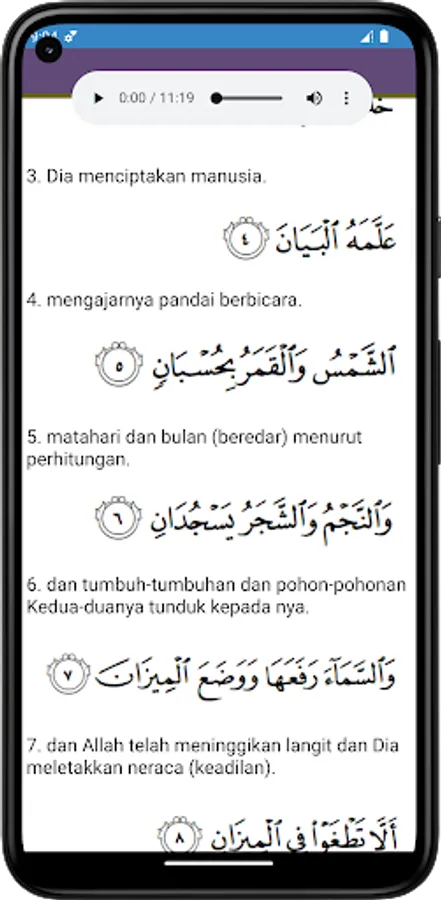 0:00 / 11:19
3. Dia menciptakan manusia.
عَلَّمَهُ ٱلْبَيَانَ ٤
4. mengajarnya pandai berbicara.
ٱلشَّمْسُ وَٱلْقَمَرُ بِحُسْبَانٍ ٥
5. matahari dan bulan (beredar) menurut
perhitungan.
وَٱلنَّجْمُ وَٱلشَّجَرُ يَسْجُدَانِ ٦
6. dan tumbuh-tumbuhan dan pohon-pohonan
Kedua-duanya tunduk kepada nya.
وَٱلسَّمَآءَ رَفَعَهَا وَوَضَعَ ٱلْمِيزَانَ ٧
7. dan Allah telah meninggikan langit dan Dia
meletakkan neraca (keadilan).
أَلَّا تَطْغَوْا۟ فِى ٱلْمِيزَانِ ٨